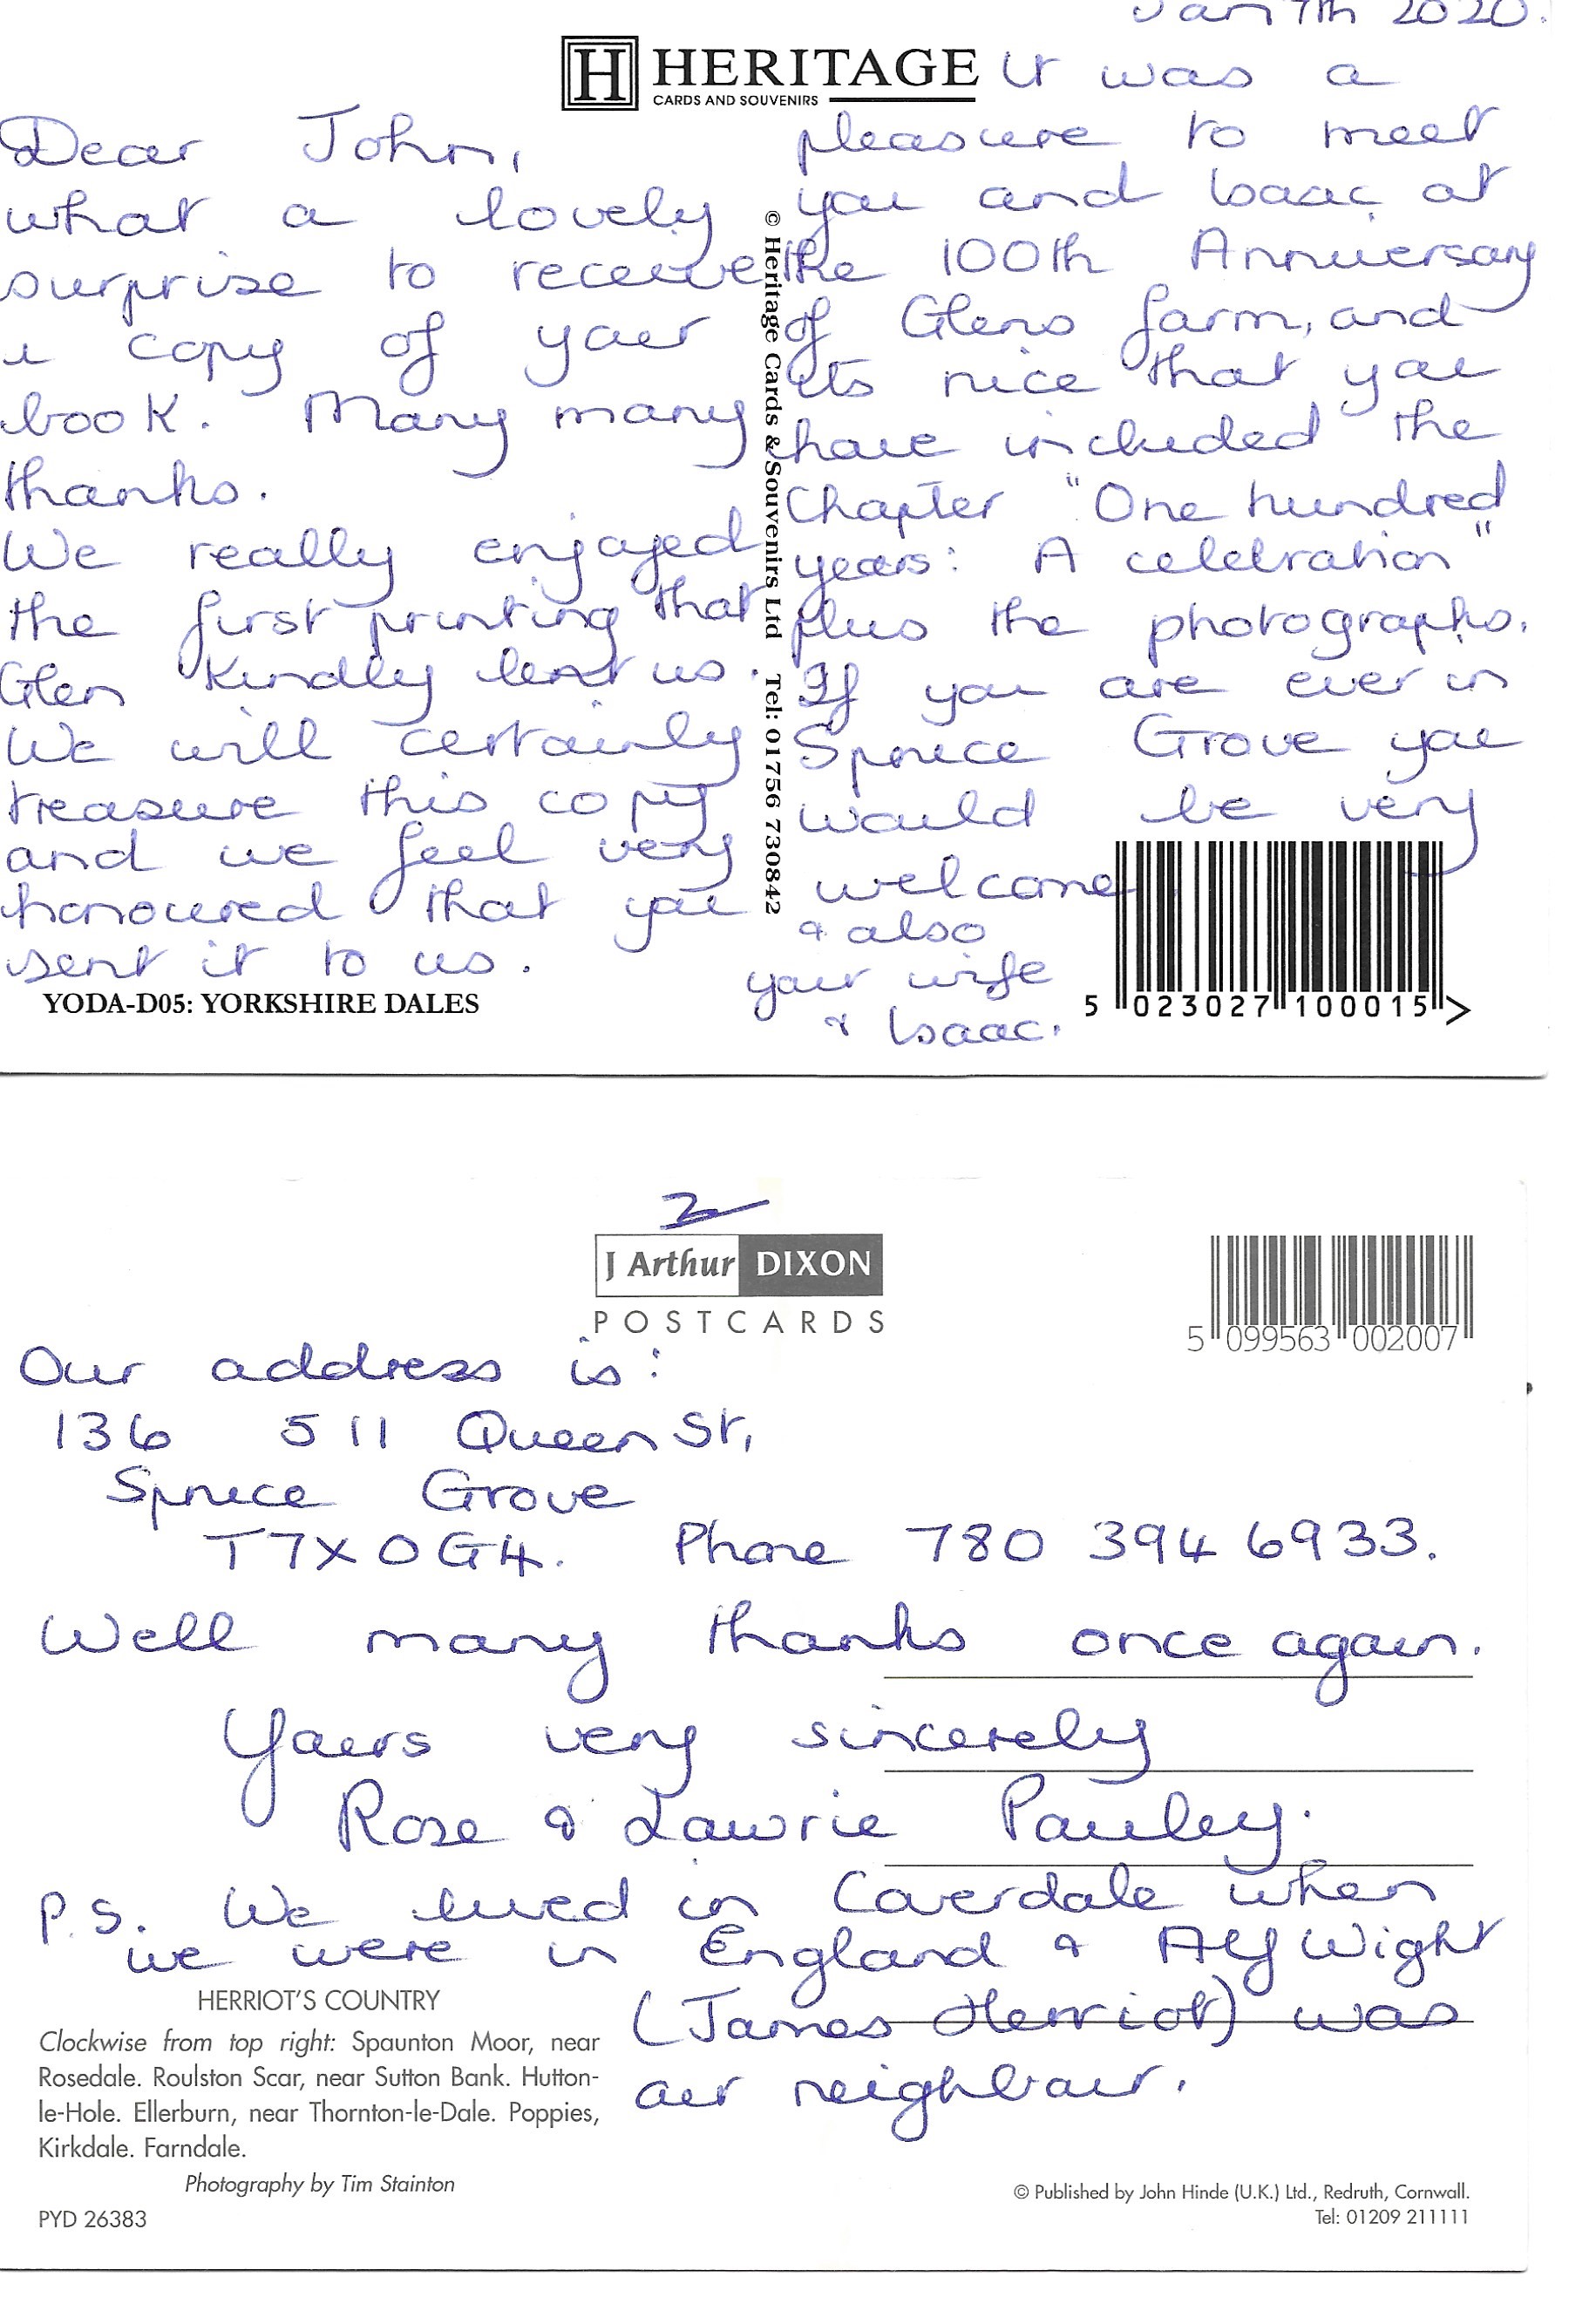 Jan 7th 2020.
H HERITAGE
CARDS AND SOUVENIRS
Dear John,
what a lovely
surprise to receive
a copy of your
book. Many many
thanks.
We really enjoyed
the first printing that
Glen kindly lent us.
We will certainly
treasure this copy
and we feel very
honoured that you
sent it to us.
YODA-D05: YORKSHIRE DALES
© Heritage Cards & Souvenirs Ltd Tel: 01756 730842
It was a
pleasure to meet
you and Isaac at
the 100th Anniversary
of Glens farm, and
its nice that you
have included the
Chapter "One hundred
years: A celebration"
plus the photographs.
If you are ever in
Spruce Grove you
would be very
welcome
& also
your wife
& Isaac.
5 023027 100015 >
2
J Arthur DIXON
POSTCARDS
5 099563 002007
Our address is:
136 511 Queen St,
Spruce Grove
T7X 0G4. Phone 780 394 6933.
Well many thanks once again.
Yours very sincerely
Rose & Lawrie Pauley.
P.S. We lived in Coverdale when
we were in England & Alf Wight
(James Herriot) was
our neighbour.
HERRIOT'S COUNTRY
Clockwise from top right: Spaunton Moor, near
Rosedale. Roulston Scar, near Sutton Bank. Hutton-
le-Hole. Ellerburn, near Thornton-le-Dale. Poppies,
Kirkdale. Farndale.
Photography by Tim Stainton
PYD 26383
© Published by John Hinde (U.K.) Ltd., Redruth, Cornwall.
Tel: 01209 211111